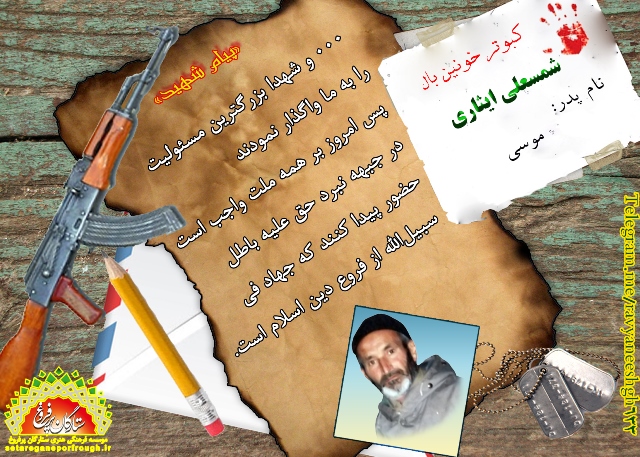 کبوتر خونین بال
شمسعلی ایثاری
نام پدر:
موسی
«پیام شهید»
... و شهدا بزرگترین مسئولیت
را به ما واگذار نمودند
پس امروز بر همه ملت واجب است
در جبهه نبرد حق علیه باطل
حضور پیدا کنند که جهاد فی
سبیل‌الله از فروع دین اسلام است.
ستارگان پرفروغ
موسسه فرهنگی هنری ستارگان پرفروغ
setareganeporfrough.ir